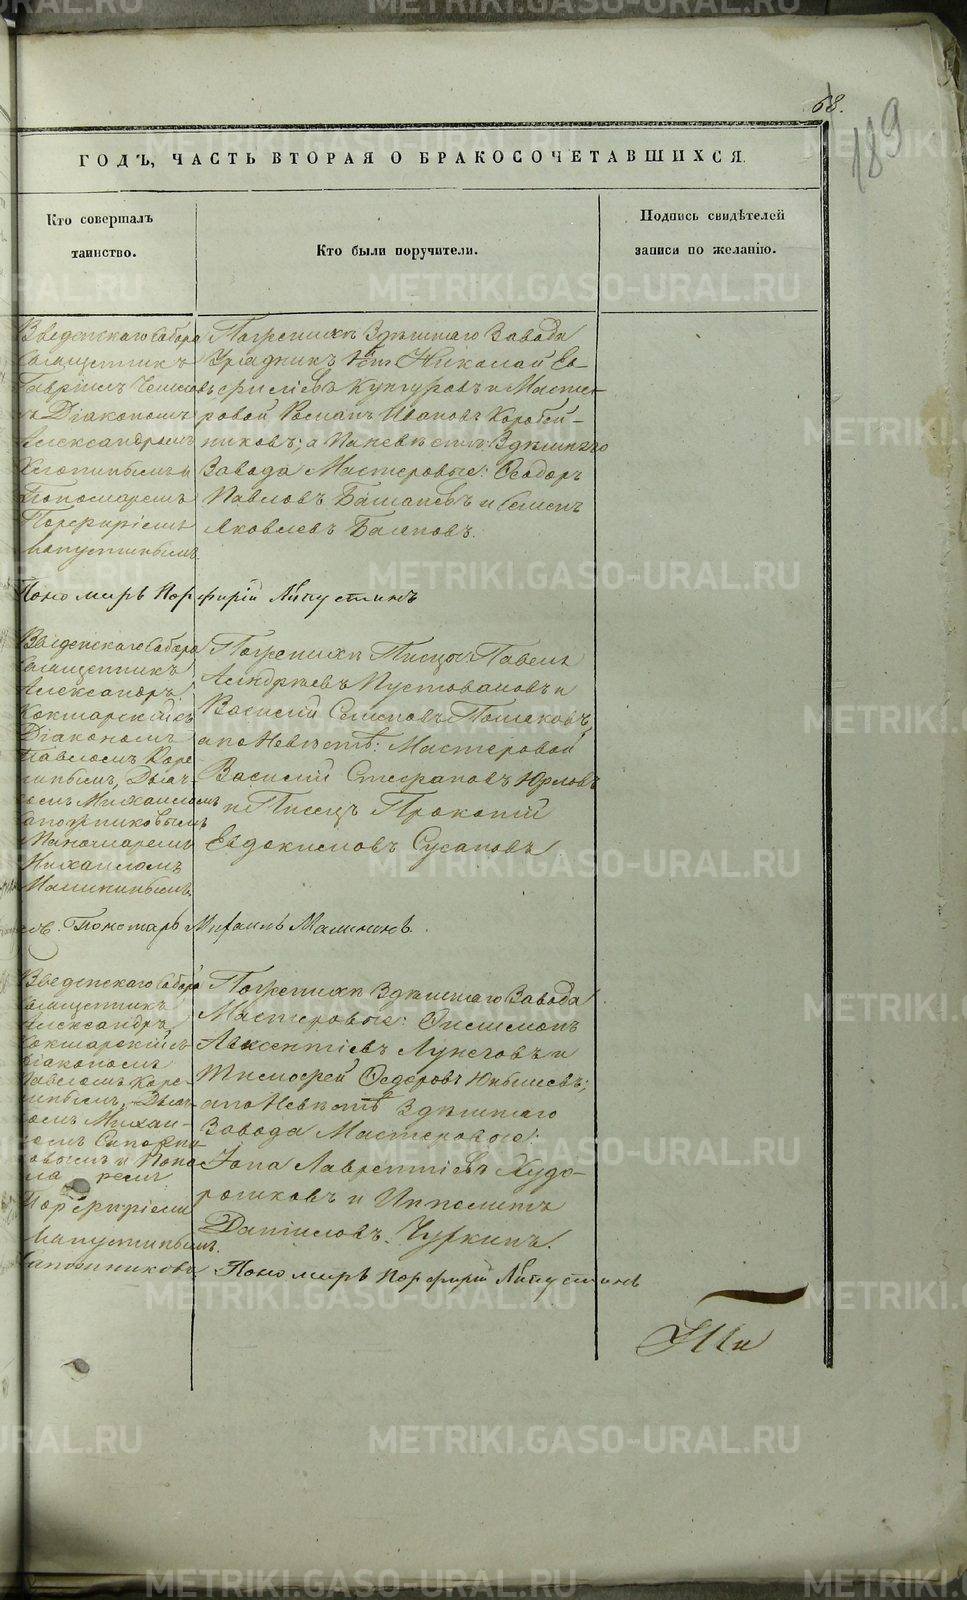 68.
189
ГОДЪ, ЧАСТЬ ВТОРАЯ О БРАКОСОЧЕТАВШИХСЯ.
Кто совершалъ
таинство.
Кто были поручители.
Подпись свидѣтелей
записи по желанію.
Введенскаго Собора
Священникъ
Гавріилъ
съ Діакономъ
Александромъ
Пономаремъ
Порфиріемъ
Липустинымъ.
По женихѣ Здѣшняго Завода
Урядникъ Николай Ев-
сифіевъ Кунгуровъ и Масте-
ровой Романъ Ивановъ Коробей-
никовъ; а по невѣстѣ: Здѣшняго
Завода Мастеровые: Ѳеодоръ
Павловъ и Семенъ
Яковлевъ
Пономарь Порфирій Липустинъ
Введенскаго Собора
Священникъ
Александръ
Кокшарскій съ
Діакономъ
Павломъ Коре-
нымъ, Дьяч-
комъ Михаиломъ
Сапожниковымъ
и Пономаремъ
Михаиломъ
По женихѣ Писцы Павелъ
Андреевъ Пустоваловъ и
Василій Семеновъ
а по Невѣстѣ: Мастеровой
Василій Стефановъ Юрловъ
и Писецъ Прокопій
Евдокимовъ Сусановъ
Пономарь Михаилъ
Введенскаго Собора
Священникъ
Александръ
Кокшарскій съ
Діакономъ
Павломъ Коре-
нымъ, Дьяч-
комъ Михаи-
ломъ Сапожни-
ковымъ и Поно-
маремъ
Порфиріемъ
Липустинымъ.
По женихѣ Здѣшняго Завода
Мастеровые: Филимонъ
Авксентіевъ Лунеговъ и
Тимофей Ѳедоровъ
а по Невѣстѣ Здѣшняго
Завода Мастеровые:
Іона Лаврентіевъ Худо-
рожковъ и Ипполитъ
Даниловъ Чуркинъ.
Пономарь Порфирій Липустинъ
METRIKI.GASO-URAL.RU